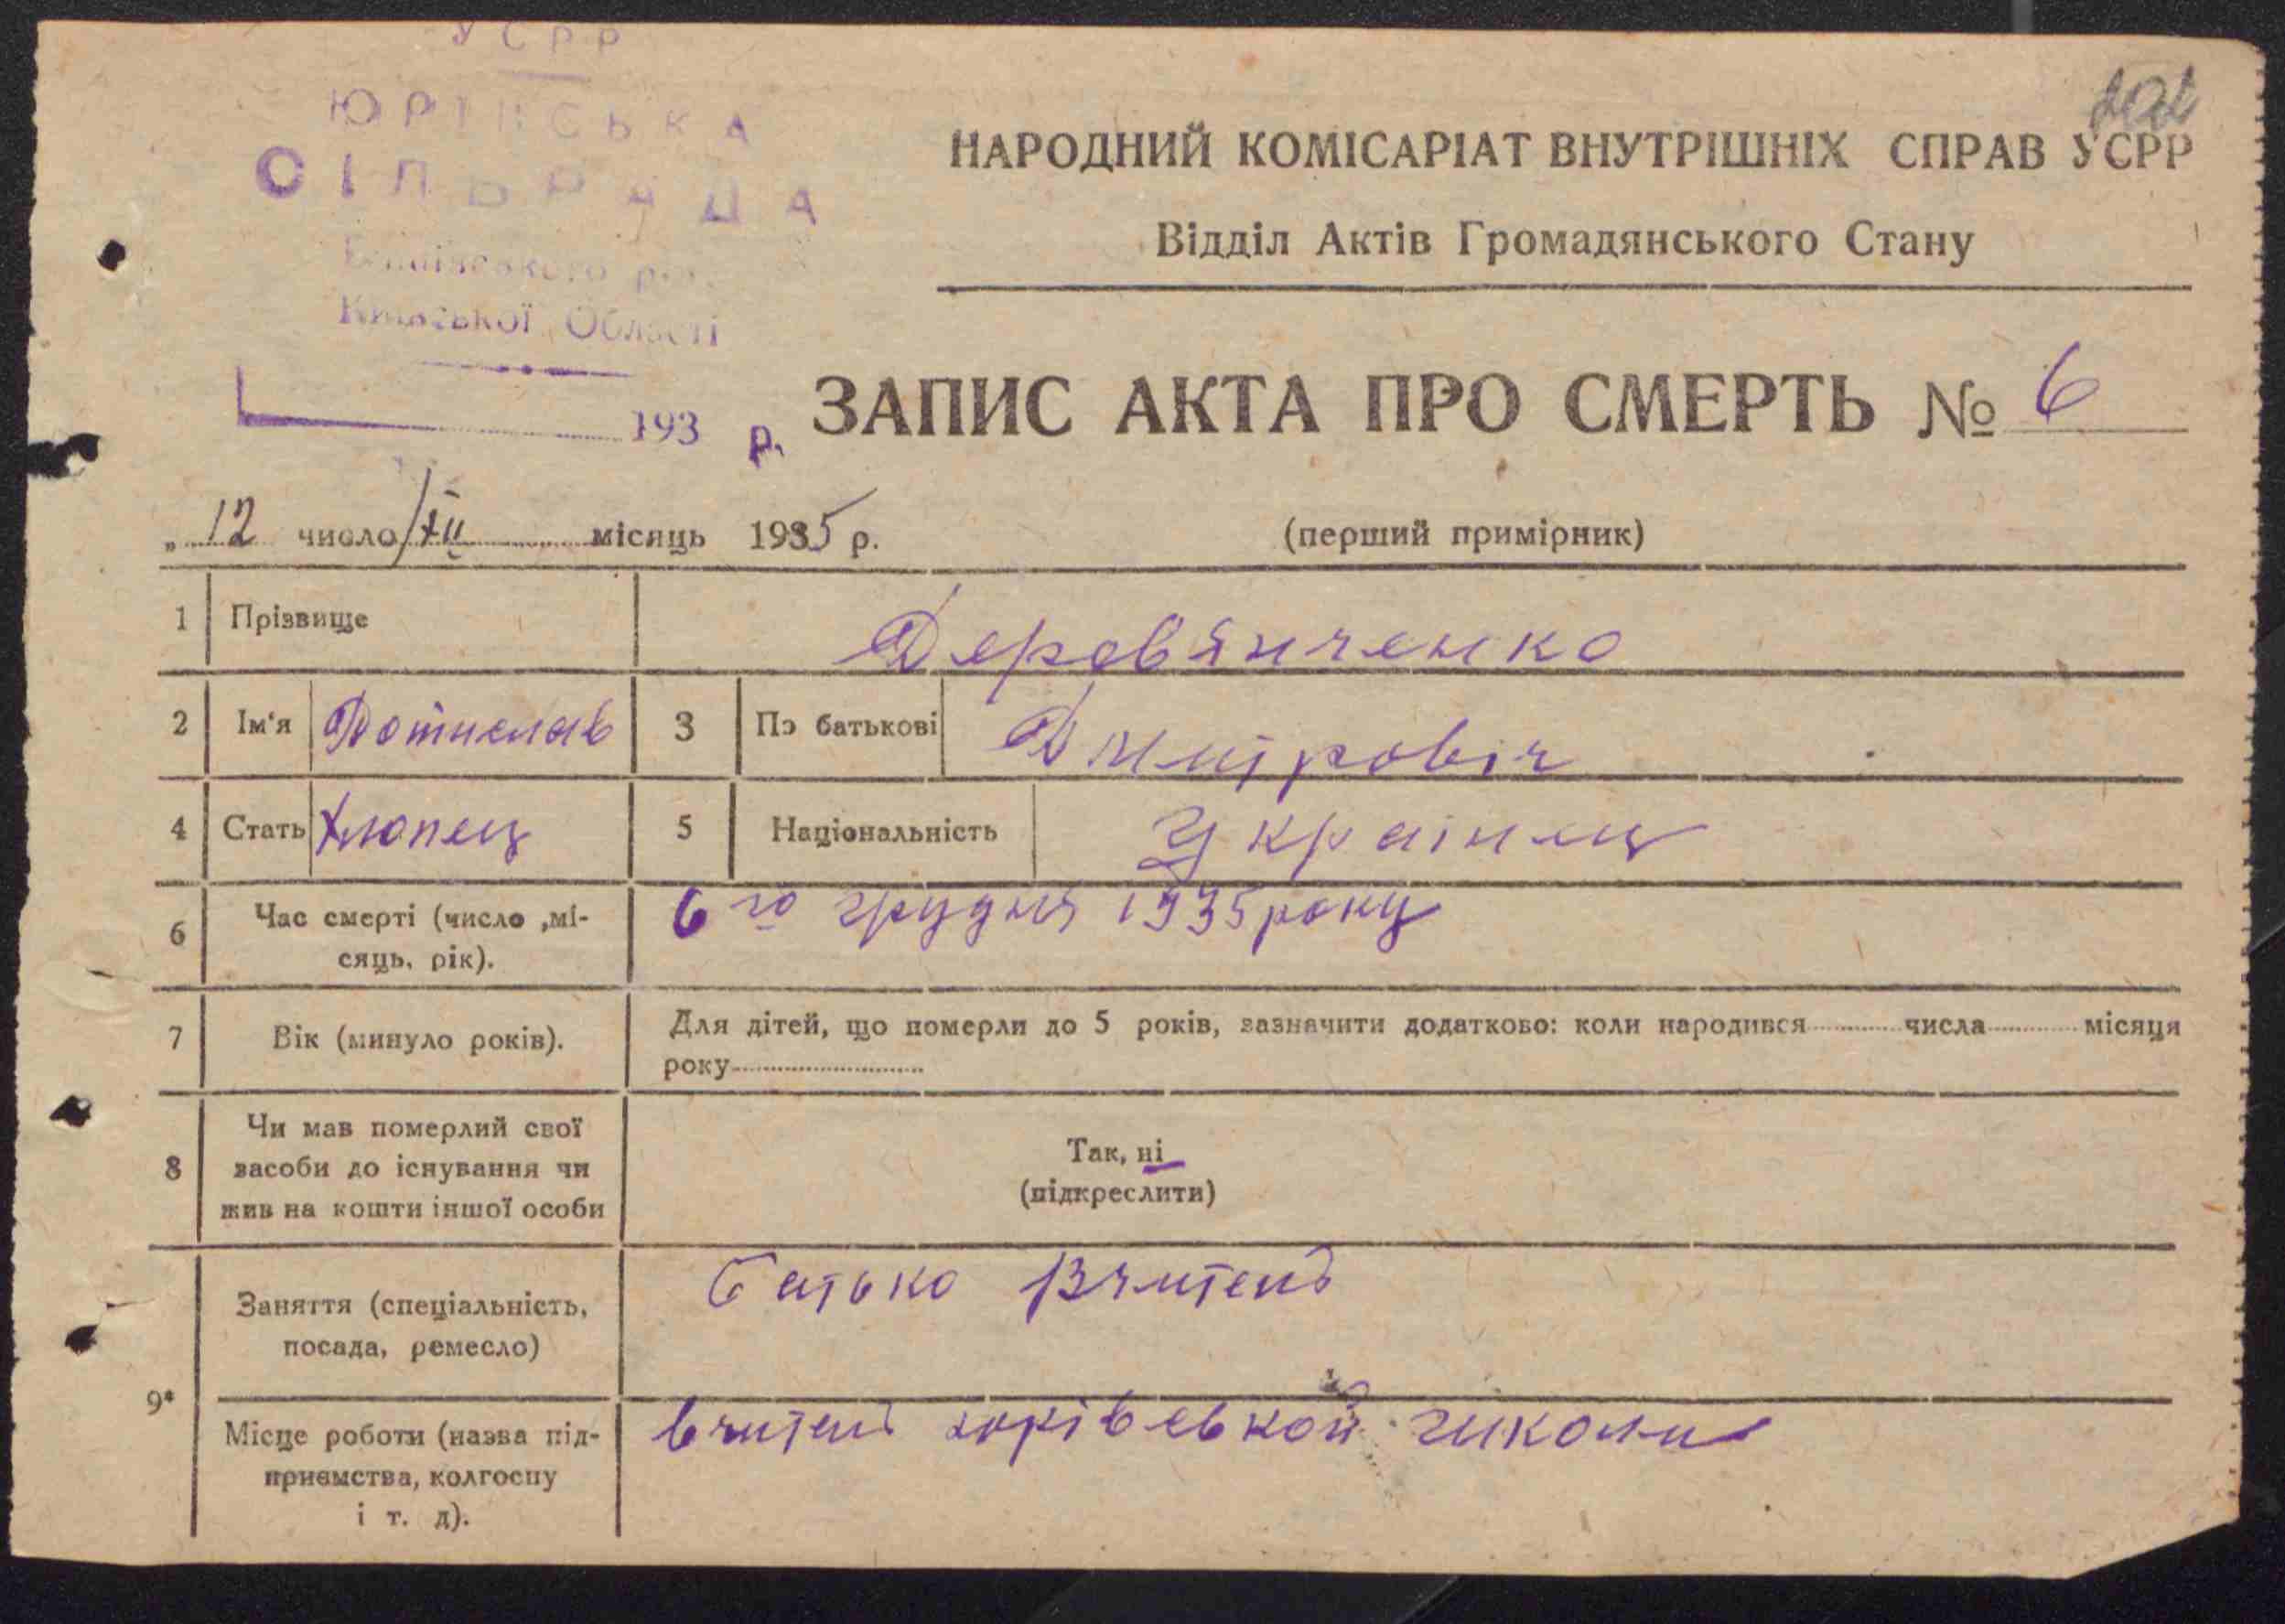 УСРР
ЮРІВСЬКА
СІЛЬРАДА
Київської Області
193 р.
НАРОДНИЙ КОМІСАРІАТ ВНУТРІШНІХ СПРАВ УСРР
Відділ Актів Громадянського Стану
ЗАПИС АКТА ПРО СМЕРТЬ № 6
„ 12 число/XII місяць 1935 р.
(перший примірник)
1 Прізвище Деревʼянченко
2 Ім'я 3 По батькові Дмитровіч
4 Стать Хлопец 5 Національність Украінец
6 Час смерті (число ,мі-
сяць, рік).
6го грудня 1935 року
7 Вік (минуло років).
Для дітей, що померли до 5 років, зазначити додатково: коли народився числа місяця
року
8 Чи мав померлий свої
засоби до існування чи
жив на кошти іншої особи
Так, ні
(підкреслити)
9*
Заняття (спеціальність,
посада, ремесло)
батько Вчитель
Місце роботи (назва під-
приємства, колгоспу
і т. д).
вчитель юрівськой школи